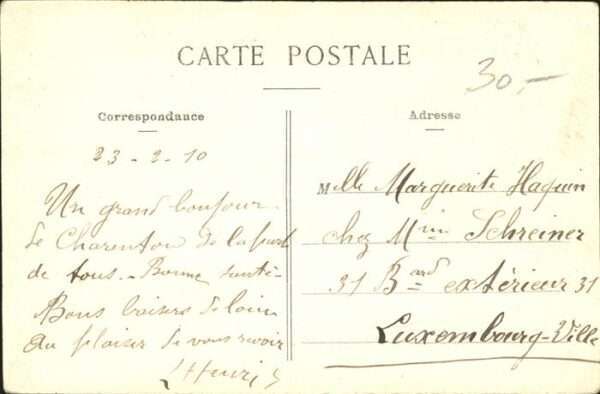 CARTE POSTALE
30,-
Correspondance
Adresse
23-2-10
Un grand bonjour
de Charenton de la part
de tous. - Bonne santé -
Bons baisers de loin
Au plaisir de vous revoir
Henri
Melle Marguerite Haquin
chez Mme Schreiner
31 Bard extérieur 31
Luxembourg-Ville